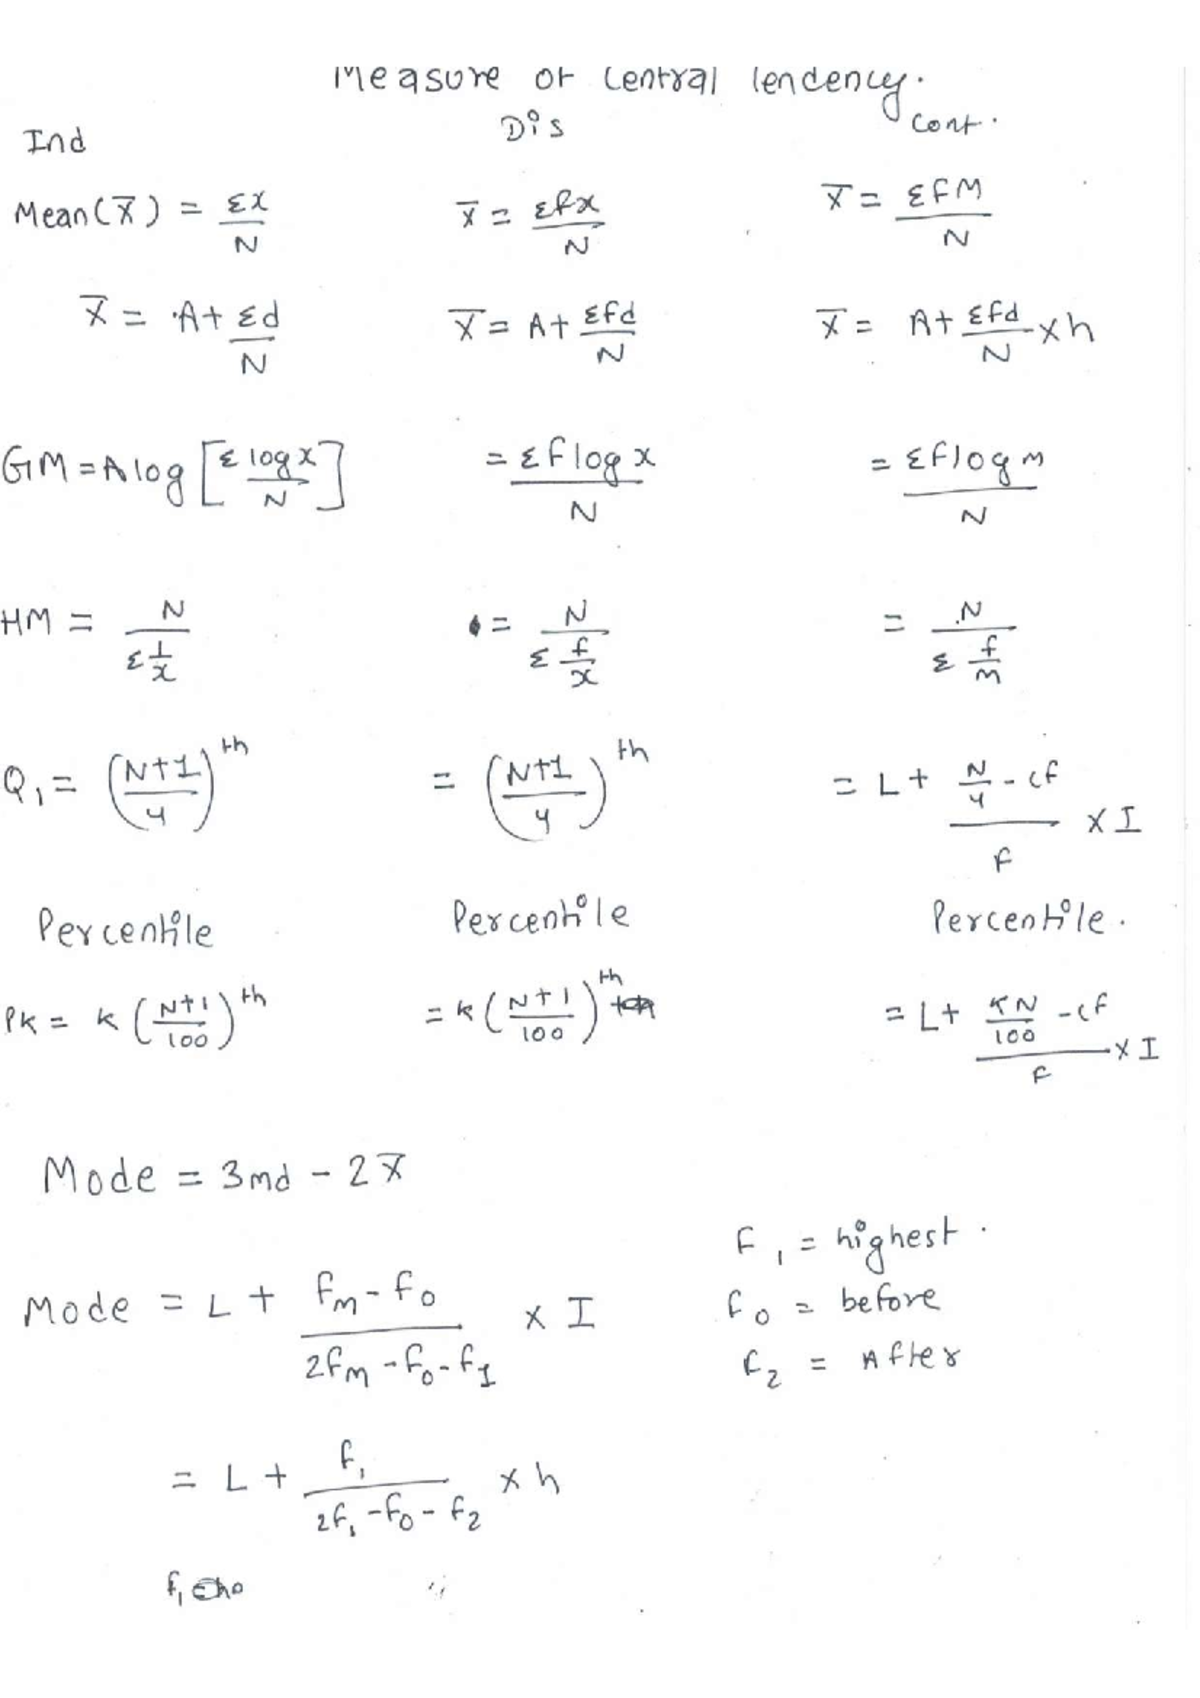 Measure of Central Tendency.
Ind Dis Cont.
Mean(X̅) = Σx/N X̅ = Σfx/N X̅ = ΣfM/N
X̅ = A + Σd/N X̅ = A + Σfd/N X̅ = A + Σfd/N × h
GM = A log [Σ log x/N] = Σf log x/N = Σf log m/N
HM = N/(Σ 1/x) = N/(Σ f/x) = N/(Σ f/m)
Q₁ = ((N+1)/4)ᵗʰ = ((N+1)/4)ᵗʰ = L + (N/4 - cf)/F × I
Percentile Percentile Percentile.
Pk = k((N+1)/100)ᵗʰ = k((N+1)/100)ᵗʰ = L + (KN/100 - cf)/F × I
Mode = 3md - 2X̅
F₁ = highest.
Mode = L + (fm - f₀)/(2fm - f₀ - f₁) × I f₀ = before
f₂ = After
= L + f₁/(2f₁ - f₀ - f₂) × h